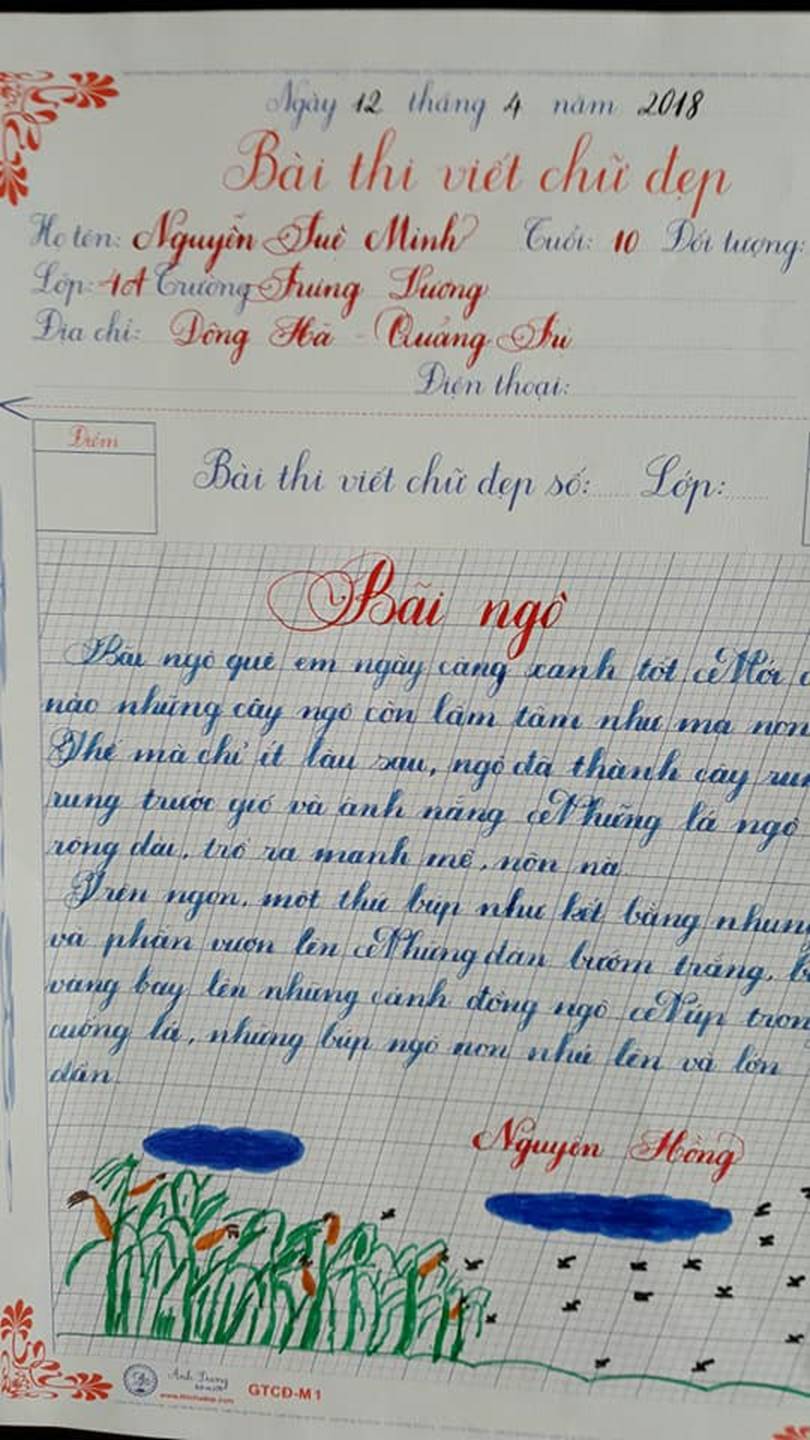 Ngày 12 tháng 4 năm 2018
Bài thi viết chữ đẹp
Họ tên: Nguyễn Tuệ Minh Tuổi: 10 Đối tượng:
Lớp: 4A Trường Trung Vương
Địa chỉ: Đông Hà - Quảng Trị
Điện thoại:
Điểm
Bài thi viết chữ đẹp số: Lớp:
Bãi ngô
Bãi ngô quê em ngày càng xanh tốt. Mới
nào những cây ngô còn lấm tấm như mạ non
Thế mà chỉ ít lâu sau, ngô đã thành cây
rung trước gió và ánh nắng. Những lá ngô
rộng dài, trổ ra mạnh mẽ, nõn nà.
Trên ngọn, một thứ búp như kết bằng nhung
và phấn vươn lên. Những đàn bướm trắng,
vàng bay lên những cánh đồng ngô. Núp
cuống lá, những búp ngô non nhú lên và lớn
dần.
Nguyên Hồng
GTCĐ-M1